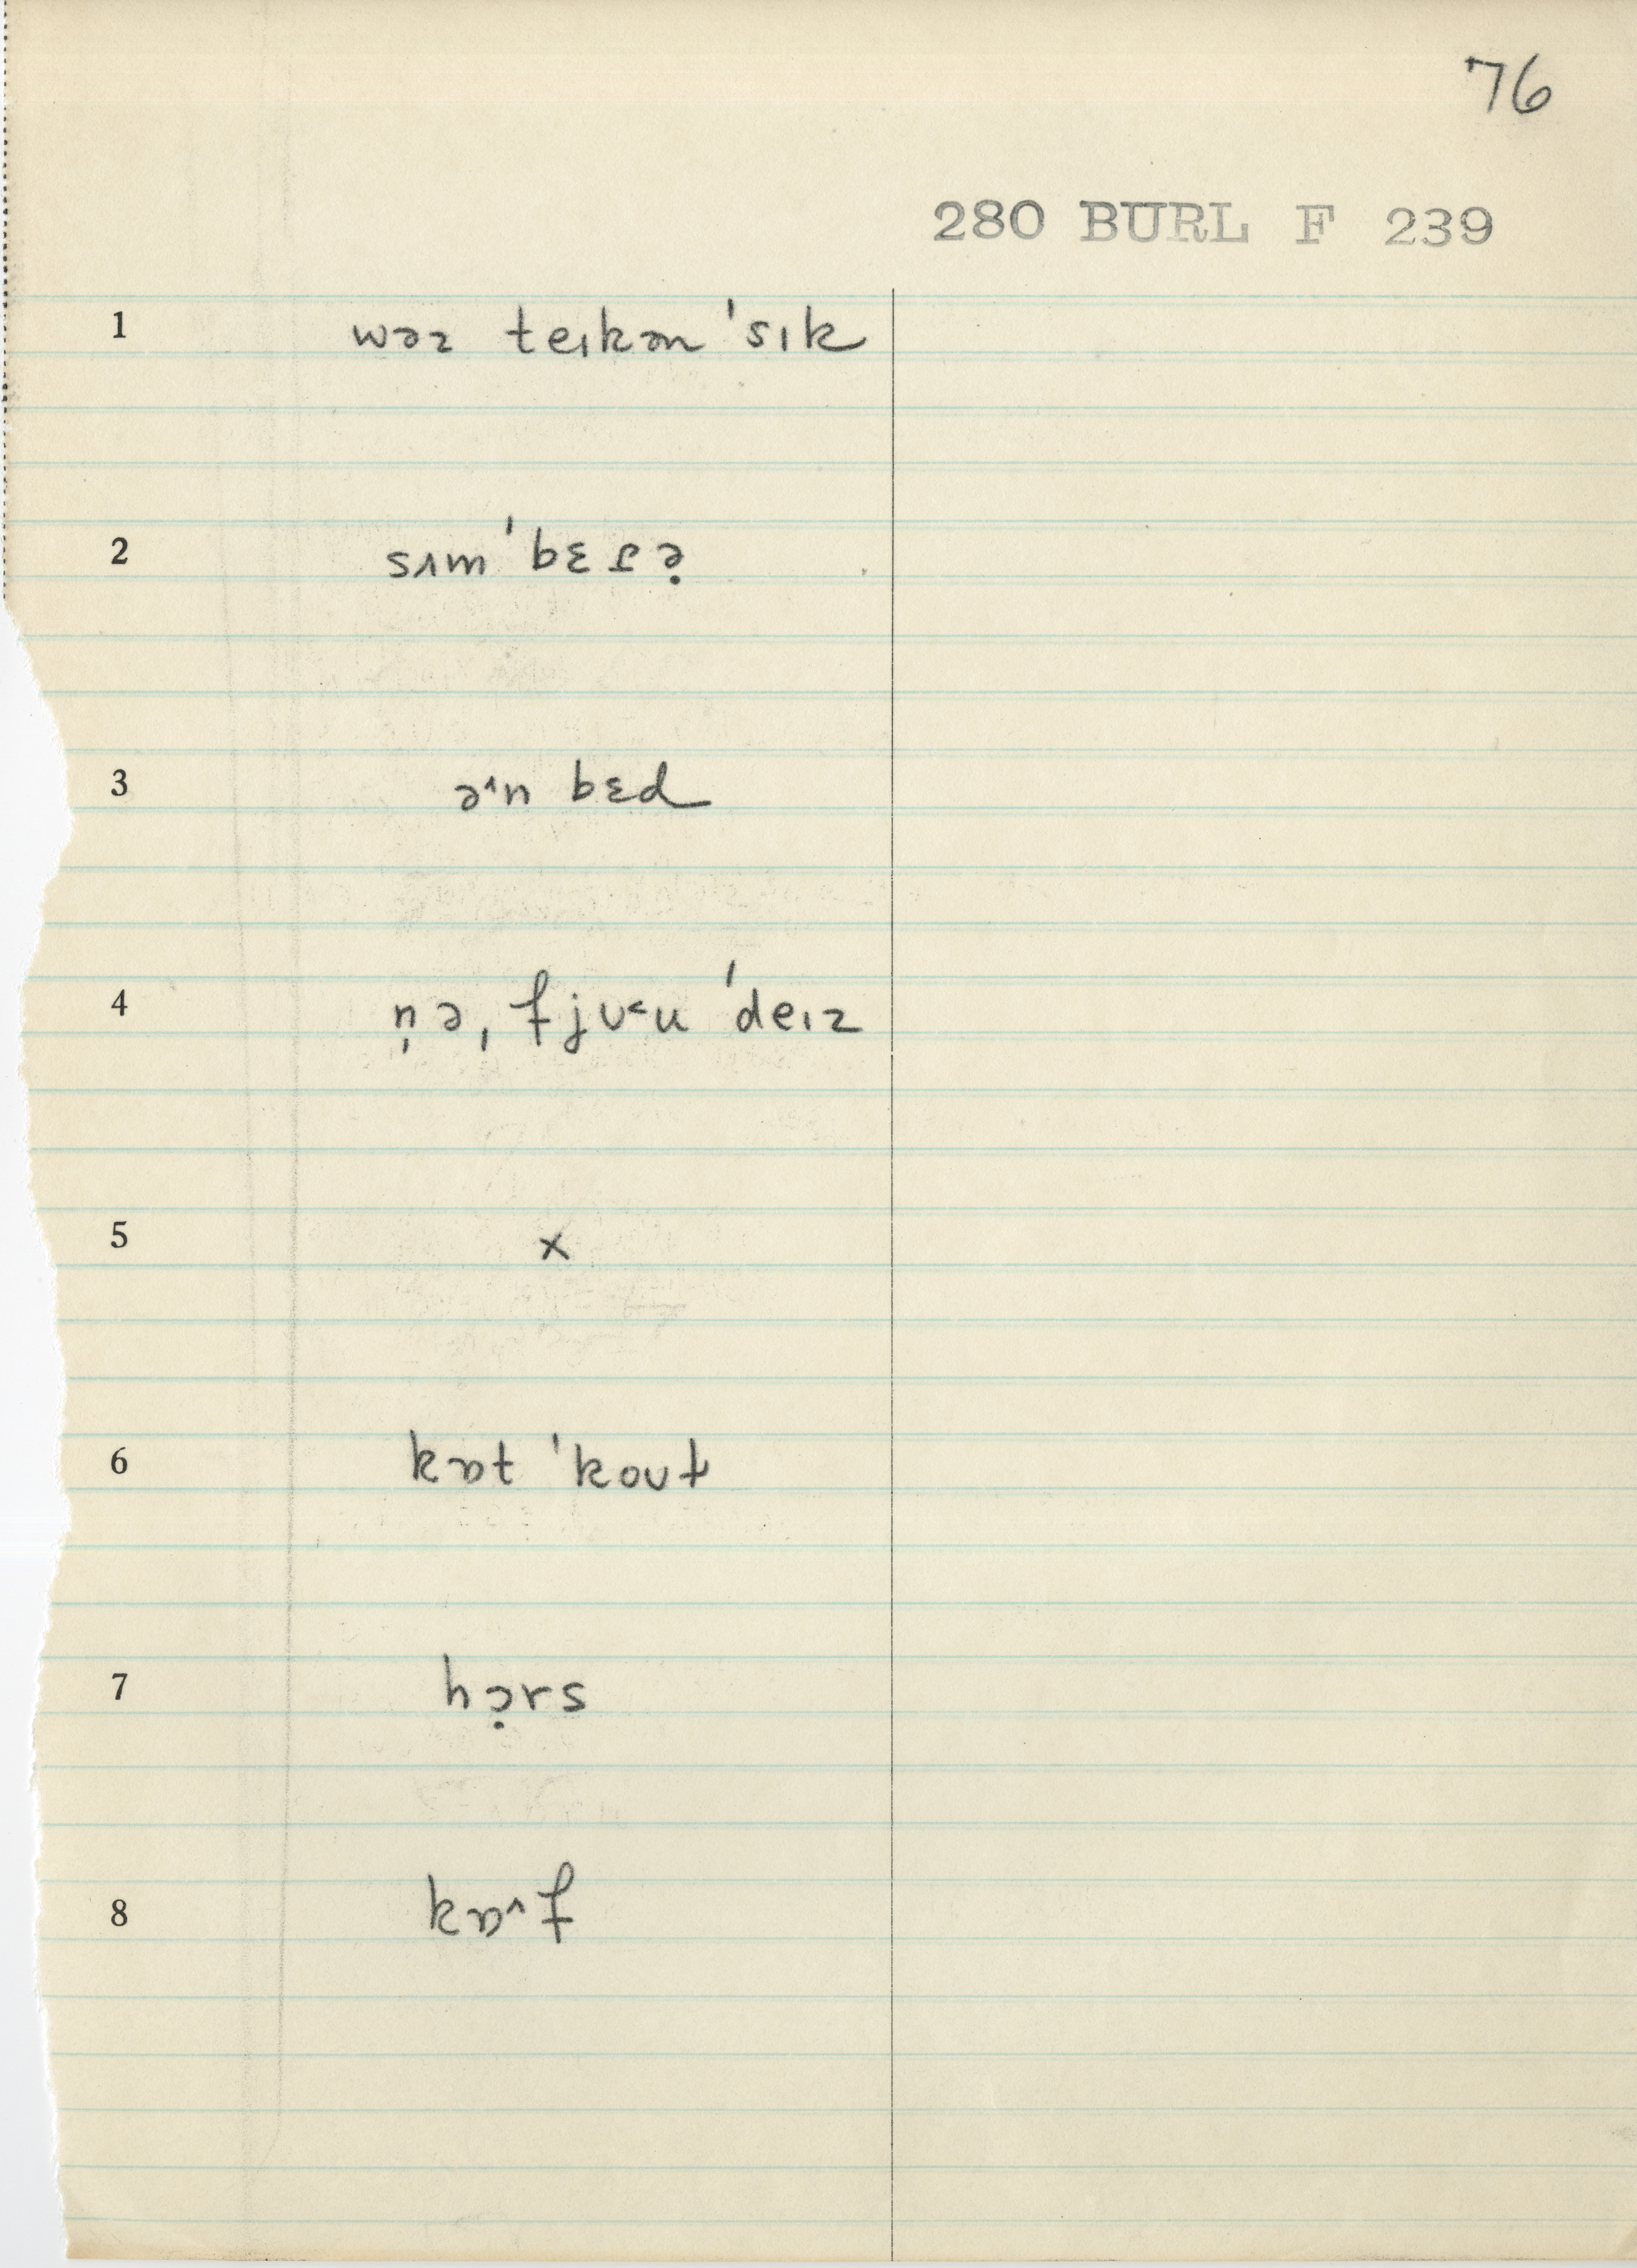 76
280 BURL F 239
1 wəz teɪkən ˈsɪk
2 sʌm ˈbɛɾə̣
3 ə˄n bɛd
4 ṇə, fjʊ˂u ˈdeɪz
5 x
6 kɒt ˈkoʊɫ
7 hɔ̣rs
8 kɒ˄f